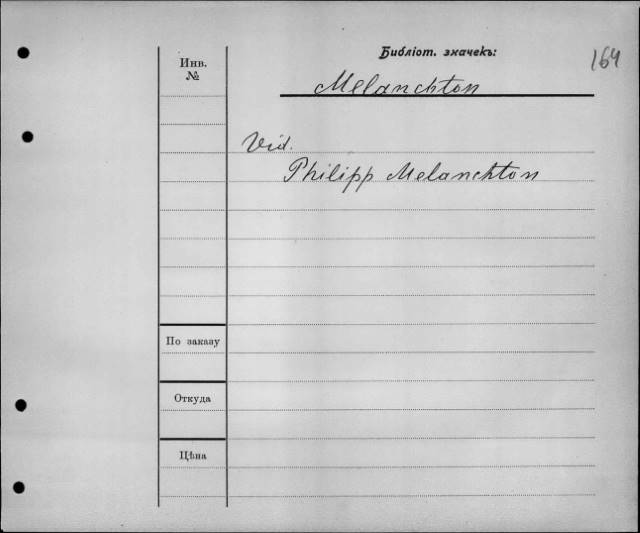 Библіот. значекъ:
164
Инв.
№
Melanchton
Vid.
Philipp Melanchton
По заказу
Откуда
Цѣна